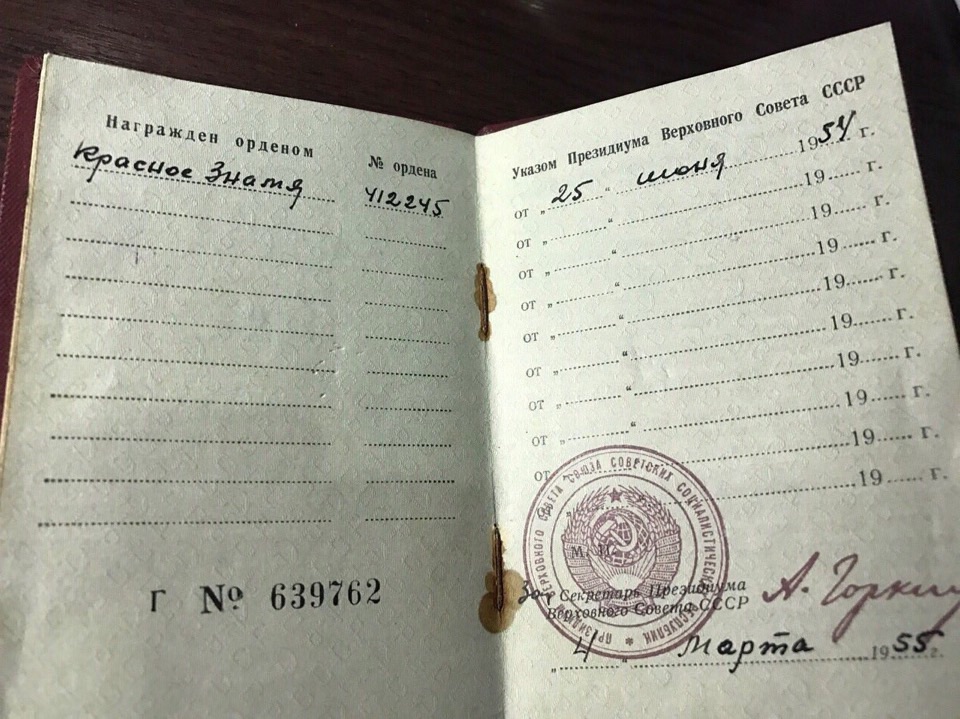 Награжден орденом
№ ордена
Красное Знамя
412245
Г № 639762
Указом Президиума Верховного Совета СССР
от „ 25 “ июня 1954 г.
от „ “ 19 г.
от „ “ 19 г.
от „ “ 19 г.
от „ “ 19 г.
от „ “ 19 г.
от „ “ 19 г.
от „ “ 19 г.
от „ 19 г.
19 г.
ПРЕЗИДИУМ ВЕРХОВНОГО СОВЕТА СОЮЗА СОВЕТСКИХ СОЦИАЛИСТИЧЕСКИХ РЕСПУБЛИК
М. П.
За Секретарь Президиума
Верховного Совета СССР
А. Горкин
„ 4 “ Марта 1955 г.